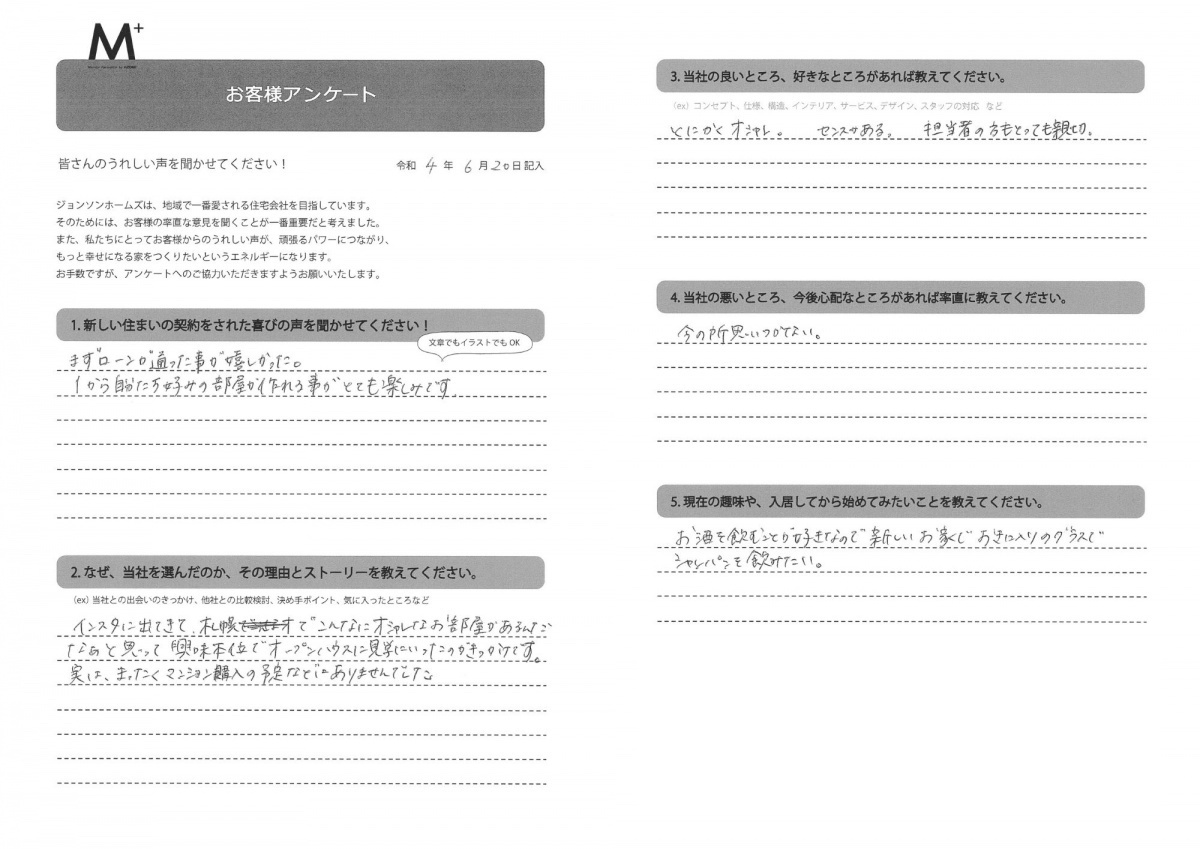 M+
お客様アンケート
皆さんのうれしい声を聞かせてください！
令和 4 年 6 月 20 日 記入
ジョンソンホームズは、地域で一番愛される住宅会社を目指しています。
そのためには、お客様の率直な意見を聞くことが一番重要だと考えました。
また、私たちにとってお客様からのうれしい声が、頑張るパワーにつながり、
もっと幸せになる家をつくりたいというエネルギーになります。
お手数ですが、アンケートへのご協力いただきますようお願いいたします。
1. 新しい住まいの契約をされた喜びの声を聞かせてください！
文章でもイラストでも OK
まずローンが通った事が嬉しかった。
1から自分たち好みの部屋が作れる事がとても楽しみです。
2. なぜ、当社を選んだのか、その理由とストーリーを教えてください。
（ex）当社との出会いのきっかけ、他社との比較検討、決め手ポイント、気に入ったところなど
インスタに出てきて、札幌でこんなにオシャレなお部屋があるんだ
なぁと思って興味本位でオープンハウスに見学にいったのがきっかけです。
実は、まったくマンション購入の予定などはありませんでした。
3. 当社の良いところ、好きなところがあれば教えてください。
（ex）コンセプト、仕様、構造、インテリア、サービス、デザイン、スタッフの対応 など
とにかくオシャレ。 センスがある。 担当者の方もとっても親切。
4. 当社の悪いところ、今後心配なところがあれば率直に教えてください。
今の所思いつかない。
5. 現在の趣味や、入居してから始めてみたいことを教えてください。
お酒を飲むことが好きなので新しいお家でお気に入りのグラスで
シャンパンを飲みたい。